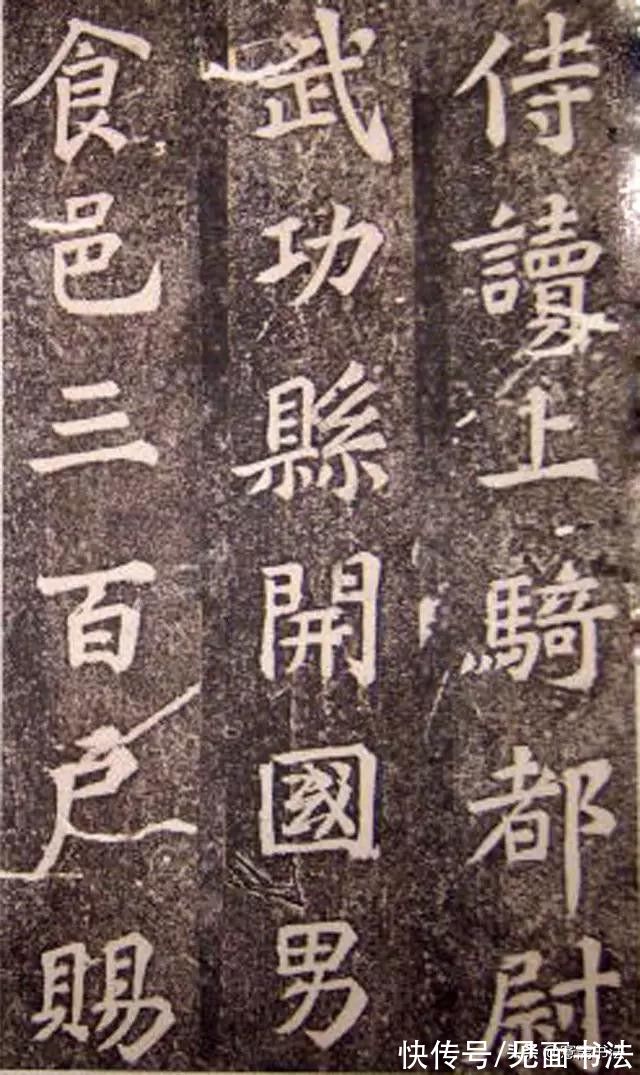 侍讀上騎都尉
武功縣開國男
食邑三百户賜
快传号/见面书法